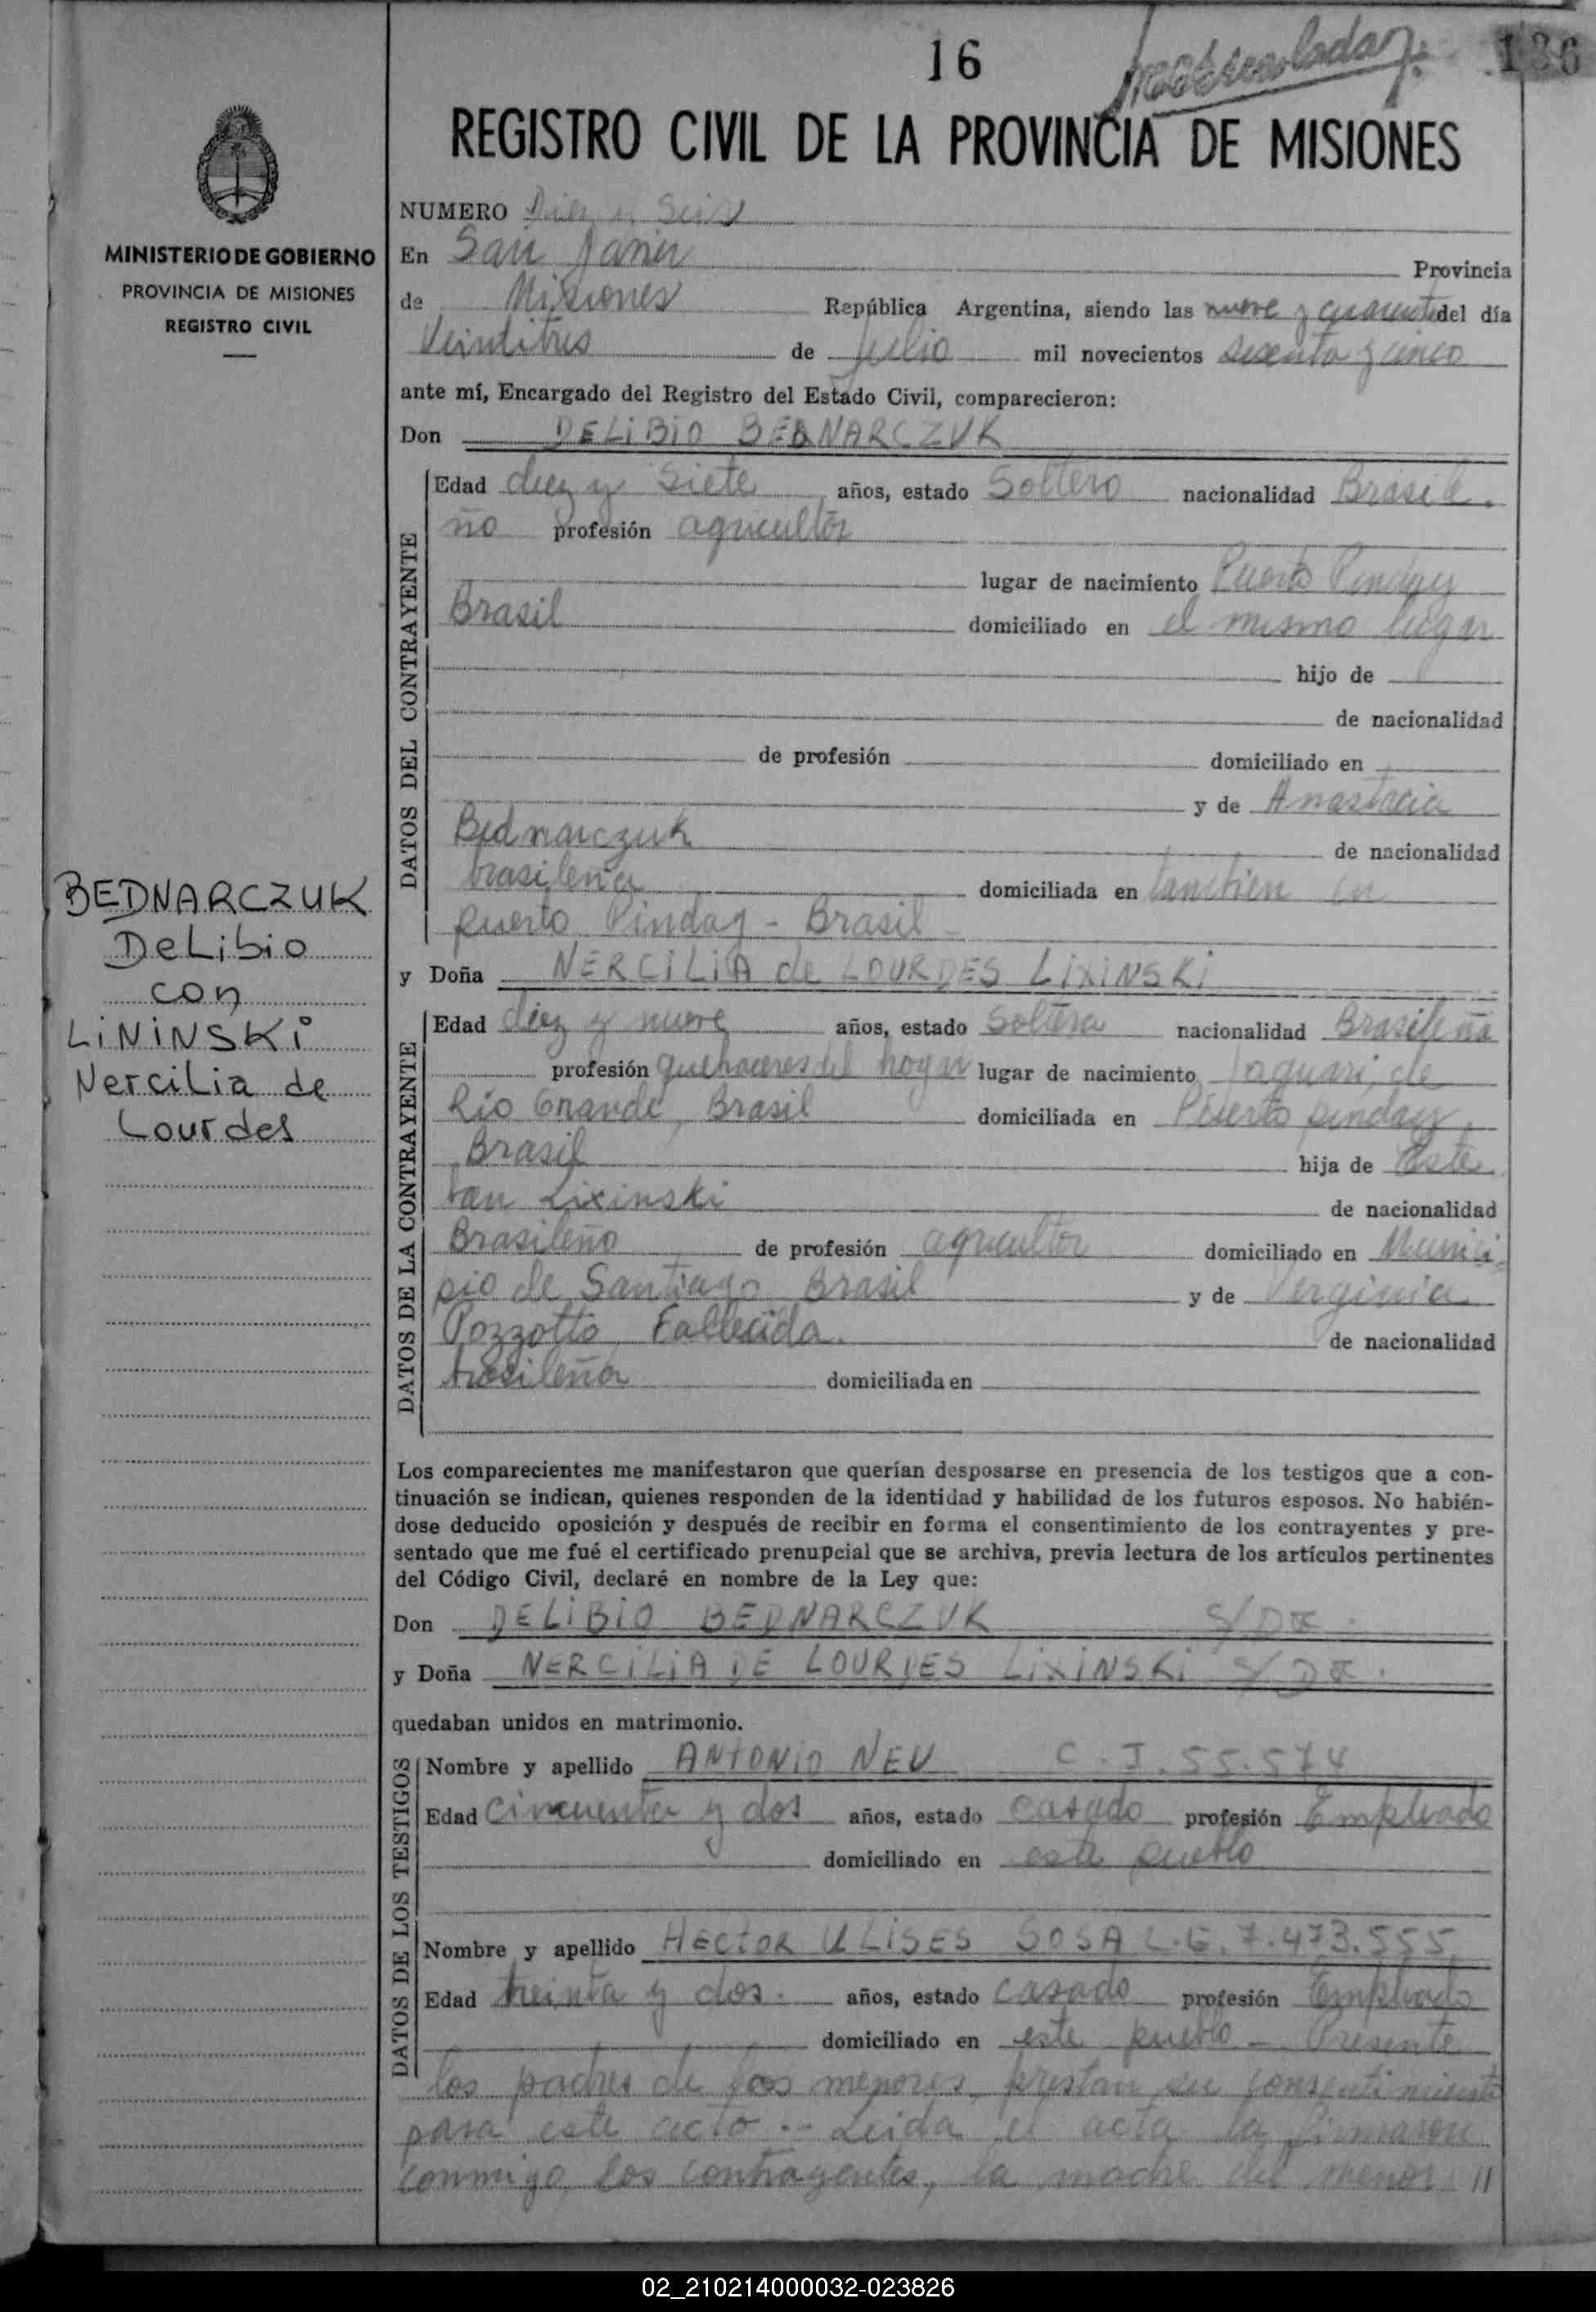 16
Matriculado
126
REGISTRO CIVIL DE LA PROVINCIA DE MISIONES
MINISTERIO DE GOBIERNO
PROVINCIA DE MISIONES
REGISTRO CIVIL
NUMERO Diez y Seis
En San Javier Provincia
de Misiones República Argentina, siendo las nueve y cuarenta del día
Veintitres de Julio mil novecientos sesenta y cinco
ante mí, Encargado del Registro del Estado Civil, comparecieron:
Don DELIBIO BEDNARCZUK
DATOS DEL CONTRAYENTE
Edad diez y siete años, estado Soltero nacionalidad Brasile
ño profesión agricultor
lugar de nacimiento Puerto Pinday
Brasil domiciliado en el mismo lugar
hijo de
de nacionalidad
de profesión domiciliado en
y de Anastacia
Bednarczuk de nacionalidad
brasileña domiciliada en tambien en
puerto Pinday - Brasil -
y Doña NERCILIA de LOURDES LIXINSKI
BEDNARCZUK
DeLibio
con
LININSKI
Nercilia de
Lourdes
DATOS DE LA CONTRAYENTE
Edad diez y nueve años, estado Soltera nacionalidad Brasileña
profesión quehaceres del hogar lugar de nacimiento Jaguari, de
Río Grande, Brasil domiciliada en Puerto pinday,
Brasil hija de Este
van Lixinski de nacionalidad
Brasileño de profesión agricultor domiciliado en Munici
pio de Santiago Brasil y de Verginia
Pozzotto Fallecida. de nacionalidad
brasileña domiciliada en
Los comparecientes me manifestaron que querían desposarse en presencia de los testigos que a con-
tinuación se indican, quienes responden de la identidad y habilidad de los futuros esposos. No habién-
dose deducido oposición y después de recibir en forma el consentimiento de los contrayentes y pre-
sentado que me fué el certificado prenupcial que se archiva, previa lectura de los artículos pertinentes
del Código Civil, declaré en nombre de la Ley que:
Don DELIBIO BEDNARCZUK S/DI.
y Doña NERCILIA DE LOURDES LIXINSKI S/DI.
quedaban unidos en matrimonio.
DATOS DE LOS TESTIGOS
Nombre y apellido ANTONIO NEU C.I. 55.574
Edad Cincuenta y dos años, estado casado profesión Empleado
domiciliado en este pueblo
Nombre y apellido HECTOR ULISES SOSA L.E. 7.473.555
Edad treinta y dos. años, estado casado profesión Empleado
domiciliado en este pueblo - Presente
los padres de los menores, prestan su consentimiento
para este acto .- Leida el acta la firmaron
conmigo los contrayentes, la madre del menor //
02_210214000032-023826